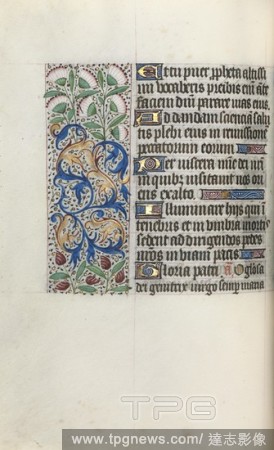 Et tu puer ppheta altissi
mi vocaberis preibis em ante
faciem dm parare vias eius.
Ad dandam scienciã salu
tis plebi eius in remissionẽ
peccatorum eorum
Per viscera mie dei nri
in quibz visitauit nos ori
ens ex alto.
Illuminare hijs qui in
tenebris et in vmbra mortis
sedent ad dirigendos pedes
nr̃os in viam pacis
Gloria patri O gl̃osa
dei genitrix virgo semp maria
TPG
www.tpgnews.com/ 達志影像